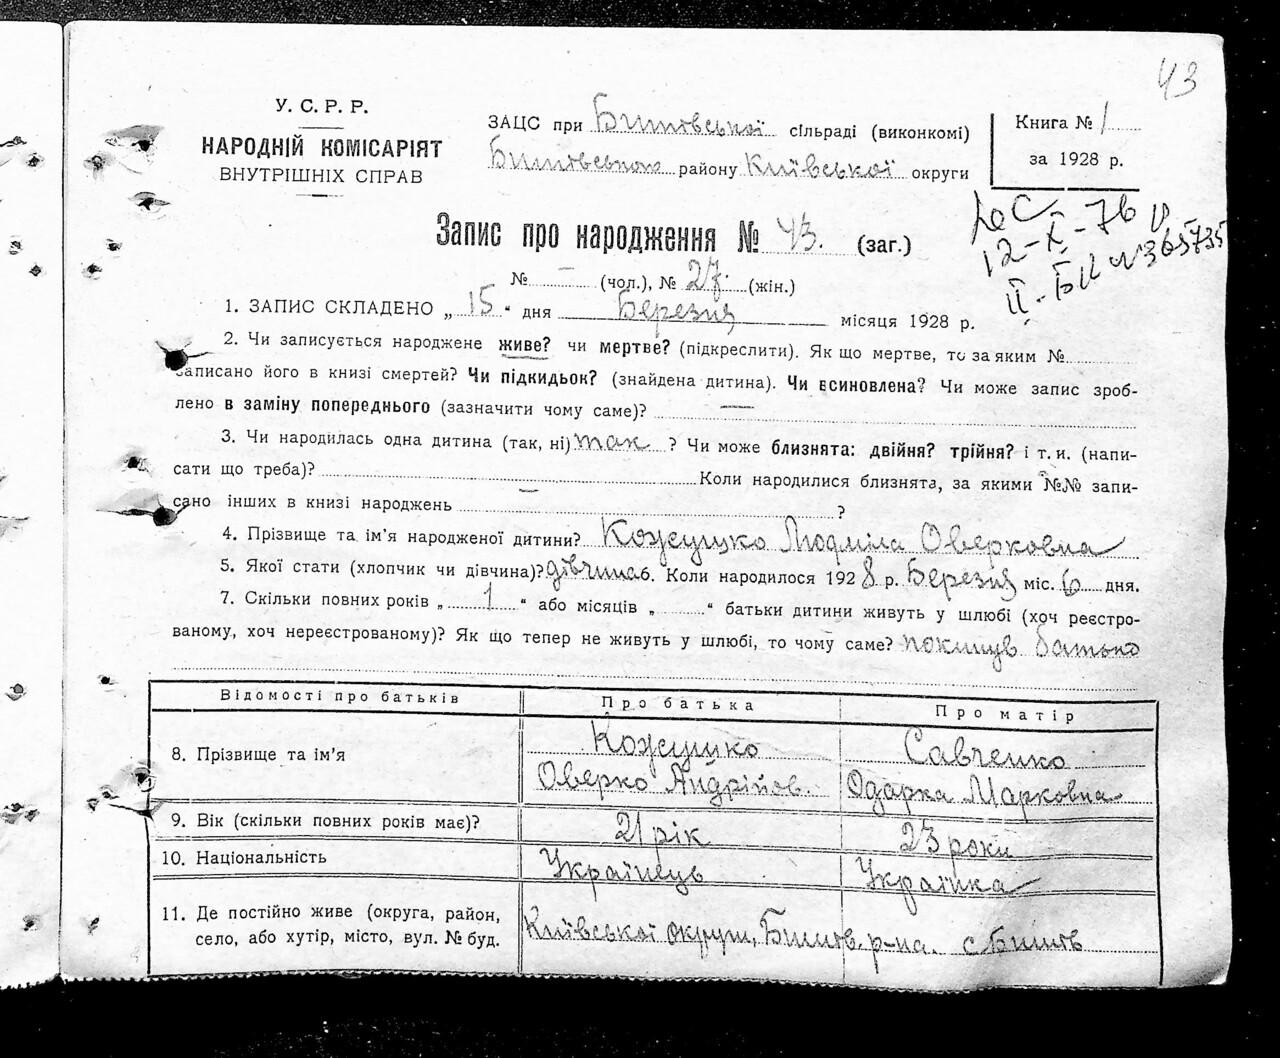 43
У. С. Р. Р.
НАРОДНІЙ КОМІСАРІЯТ
ВНУТРІШНІХ СПРАВ
ЗАЦС при Бишівської сільраді (виконкомі)
Бишівського району Київської округи
Книга № 1
за 1928 р.
12-X-76
II-БК № 365735
Запис про народження № 43. (заг.)
№ — (чол.), № 27. (жін.)
1. ЗАПИС СКЛАДЕНО „ 15 " дня Березня місяця 1928 р.
2. Чи записується народжене живе? чи мертве? (підкреслити). Як що мертве, то за яким №
записано його в книзі смертей? Чи підкидьок? (знайдена дитина). Чи всиновлена? Чи може запис зроб-
лено в заміну попереднього (зазначити чому саме)? —
3. Чи народилась одна дитина (так, ні) так ? Чи може близнята: двійня? трійня? і т. и. (напи-
сати що треба)? Коли народилися близнята, за якими №№ запи-
сано інших в книзі народжень — ?
4. Прізвище та ім'я народженої дитини? Кожушко Людміла Оверковна
5. Якої стати (хлопчик чи дівчина)? дівчина 6. Коли народилося 1928 р. Березня міс. 6 дня.
7. Скільки повних років „ 1 " або місяців „ " батьки дитини живуть у шлюбі (хоч реєстро-
ваному, хоч нереєстрованому)? Як що тепер не живуть у шлюбі, то чому саме? покинув батько
Відомості про батьків Про батька Про матір
8. Прізвище та ім'я Кожушко Савченко
Оверко Андрійов. Одарка Марковна
9. Вік (скільки повних років має)? 21 рік 23 роки
10. Національність Українець Українка
11. Де постійно живе (округа, район,
село, або хутір, місто, вул. № буд. Київської округи, Бишів. р-на. с Бишів